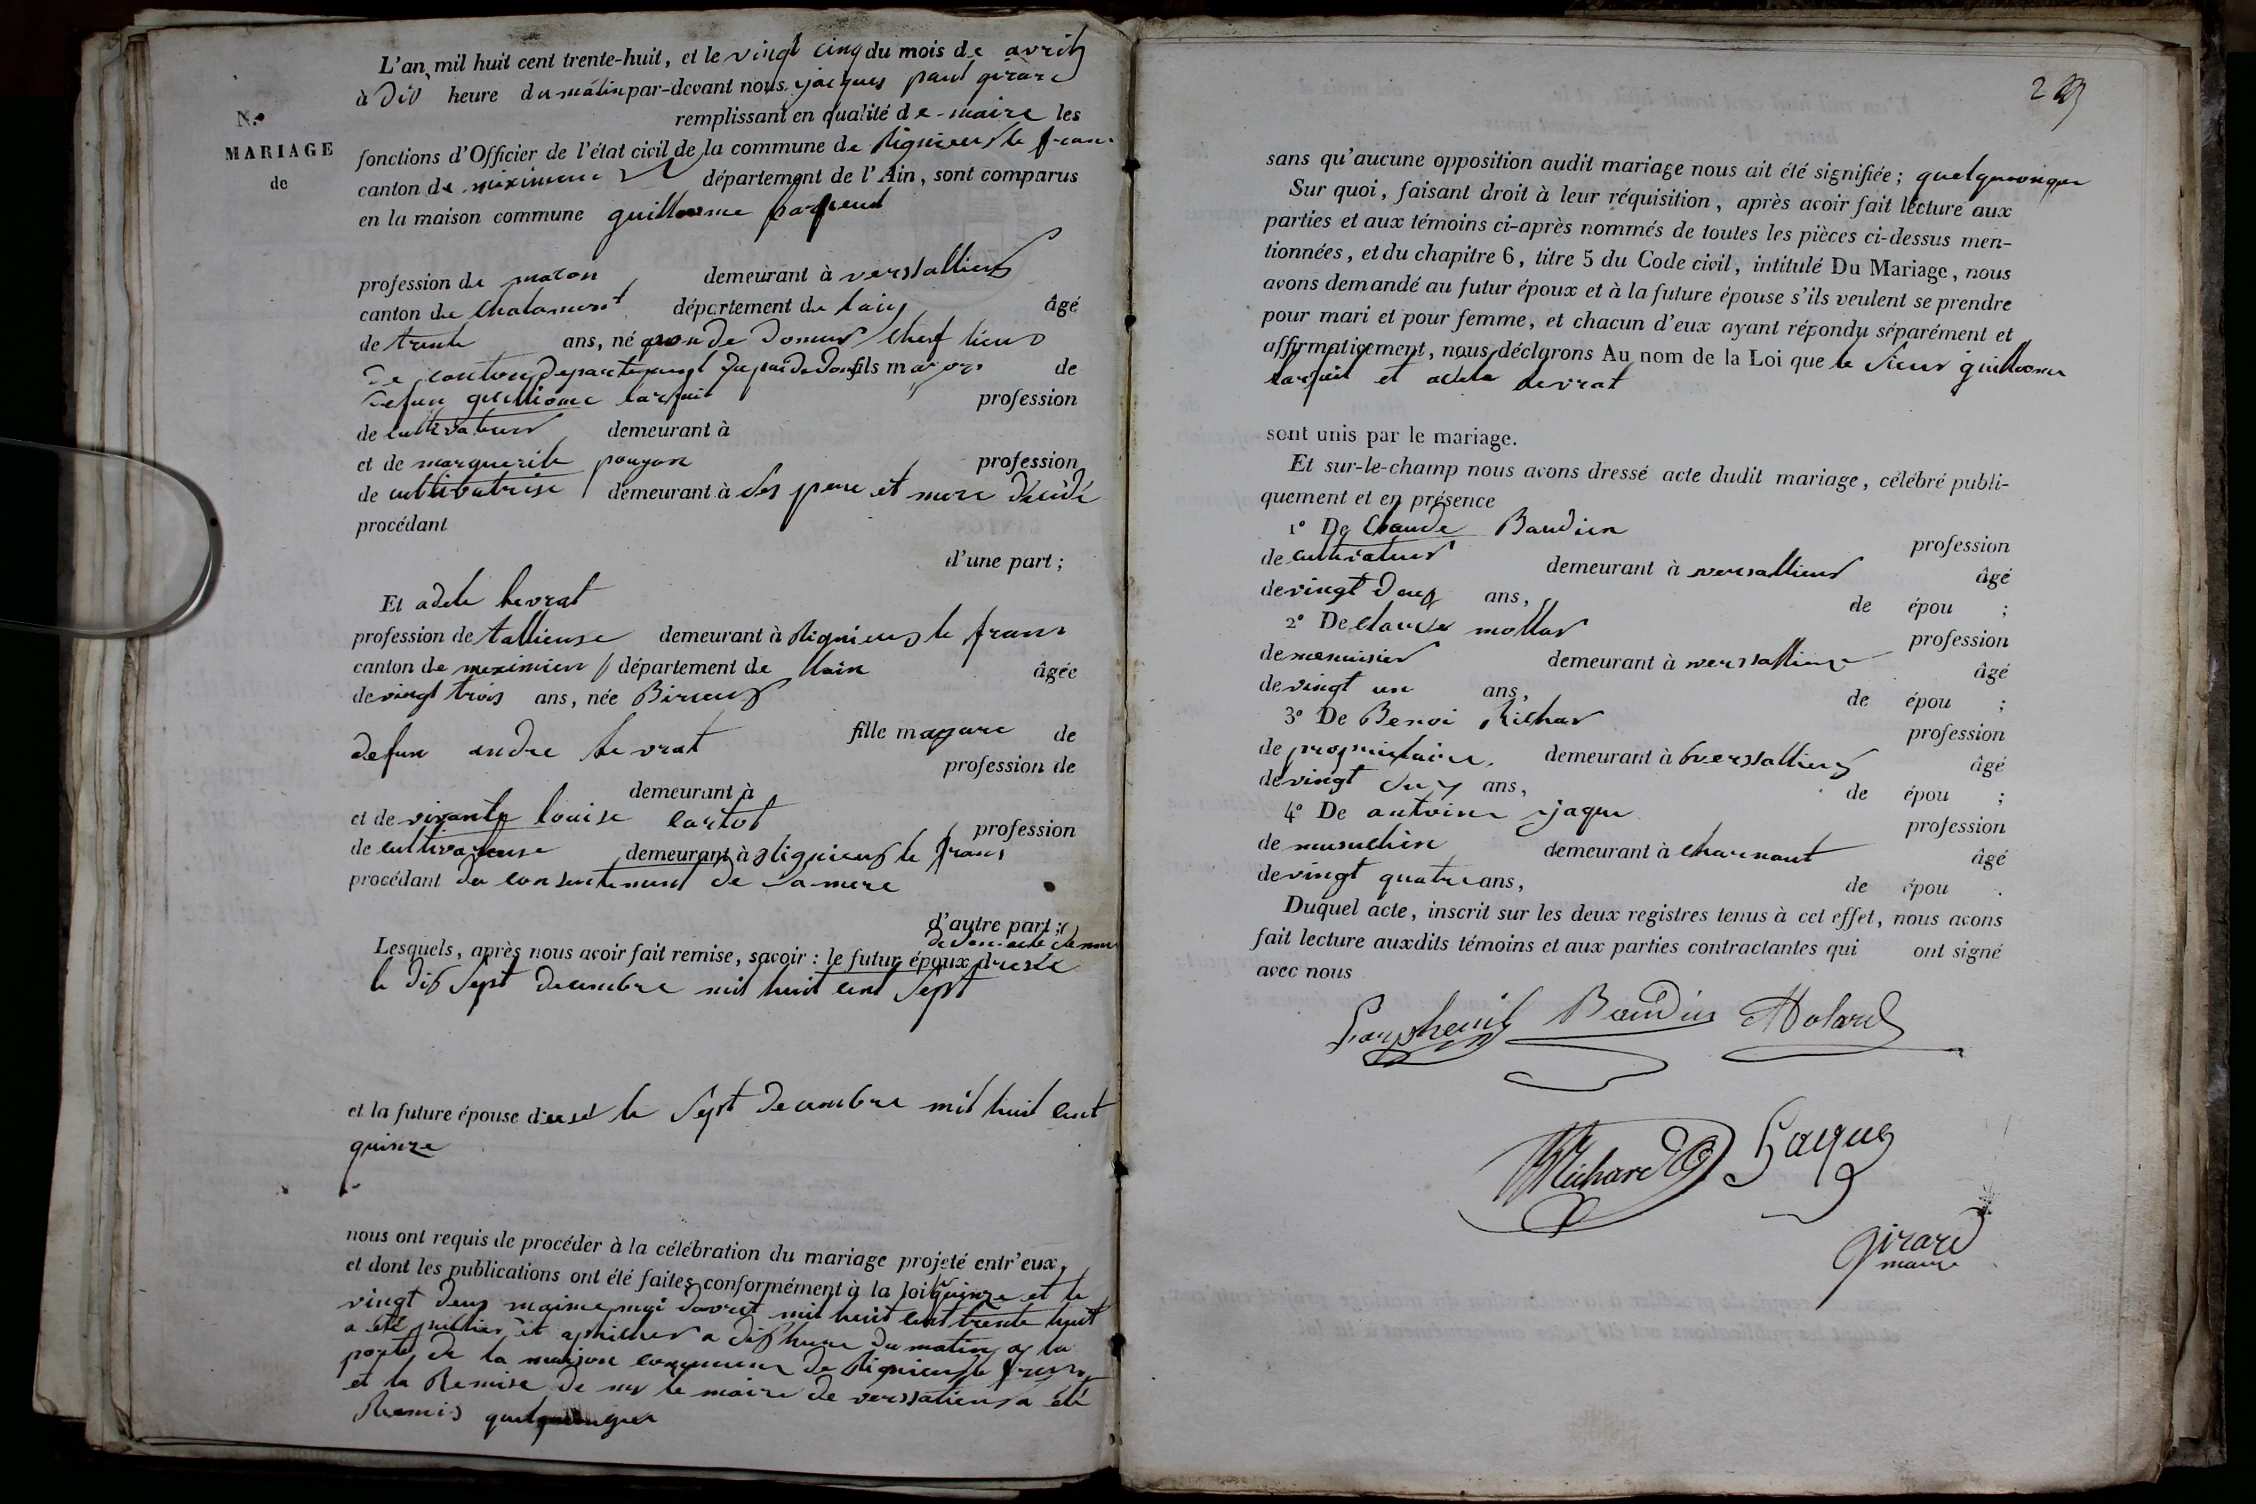 N.°
MARIAGE
de
L'an mil huit cent trente-huit, et le vingt cinq du mois de avril
à dix heure du matin par-devant nous jacques paul girard
remplissant en qualité de maire les
fonctions d'Officier de l'état civil de la commune de Rignieux le fran
canton de meximieux département de l'Ain, sont comparus
en la maison commune guillaume
profession de macon demeurant à verssallieux
canton de Chalamont département de lain âgé
de trente ans, né Domes Chef lieux
de canton departement du pui de Dom fils major de
defun guilliome larfuit profession
de cultivateur demeurant à
et de marguerite pouyon profession
de cultivatrise demeurant à des pere et mere décédé
procédant
d'une part ;
Et adele hevrat
profession de tallieuse demeurant à Rignieux le frans
canton de meximieux département de lain âgée
de vingt trois ans, née Birieux
fille majore de
defun andre hevrat
profession de
demeurant à
et de vivante louise cartot
profession
de cultivateuse demeurant à Rignieux le frans
procédant du consentement de sa mere
d'autre part ;
Lesquels, après nous avoir fait remise, savoir : le futur époux dressé
le dix sept decembre mil huit cent sept
et la future épouse dressé le sept decembre mil huit cent
quinze
nous ont requis de procéder à la célébration du mariage projeté entr'eux,
et dont les publications ont été faites conformément à la loi le quinze et le
vingt deux davril mil huit cent trente huit
a été publier et afficher a dix heure du matin a la
porte de la maison commune de Rignieux le frans
et la Remise de le maire de verssalieux a été
Remis
223
sans qu'aucune opposition audit mariage nous ait été signifiée ; quelquonque
Sur quoi, faisant droit à leur réquisition, après avoir fait lecture aux
parties et aux témoins ci-après nommés de toutes les pièces ci-dessus men-
tionnées, et du chapitre 6, titre 5 du Code civil, intitulé Du Mariage, nous
avons demandé au futur époux et à la future épouse s'ils veulent se prendre
pour mari et pour femme, et chacun d'eux ayant répondu séparément et
affirmativement, nous déclarons Au nom de la Loi que le sieur guillaume
larfuit et adele hevrat
sont unis par le mariage.
Et sur-le-champ nous avons dressé acte dudit mariage, célébré publi-
quement et en présence
1° De Claude Baudien
profession
de cultivateur demeurant à versallieux âgé
de vingt deux ans, de épou ;
2° De claude mollar
profession
de menuisier demeurant à verssallieux âgé
de vingt un ans, de épou ;
3° De Benoi Richar
profession
de propriétaire. demeurant à verssallieux âgé
de vingt ans, de épou ;
4° De antoine jaque
profession
de demeurant à Charnaut âgé
de vingt quatre ans, de épou .
Duquel acte, inscrit sur les deux registres tenus à cet effet, nous avons
fait lecture auxdits témoins et aux parties contractantes qui ont signé
avec nous
Farpheuil Baudin Molard
Richard Jaque
girard
maire